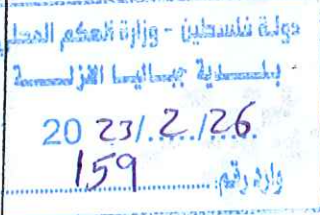 دولة فلسطين - وزارة الحكم المحلي
بلدية جباليا النزلة
2023/2/26
وارد رقم: 159